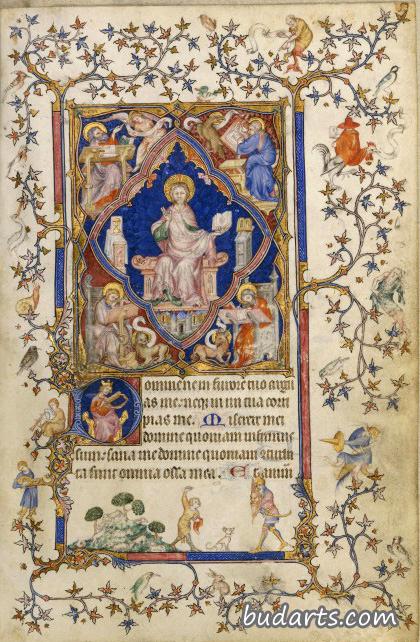 Domine ne in furore tuo argu
as me. neq in ira tua corri
pias me. Miserere mei
domine quoniam infirmus
sum. sana me domine quoniam
ta sunt omnia ossa mea. Et anima
budarts.com